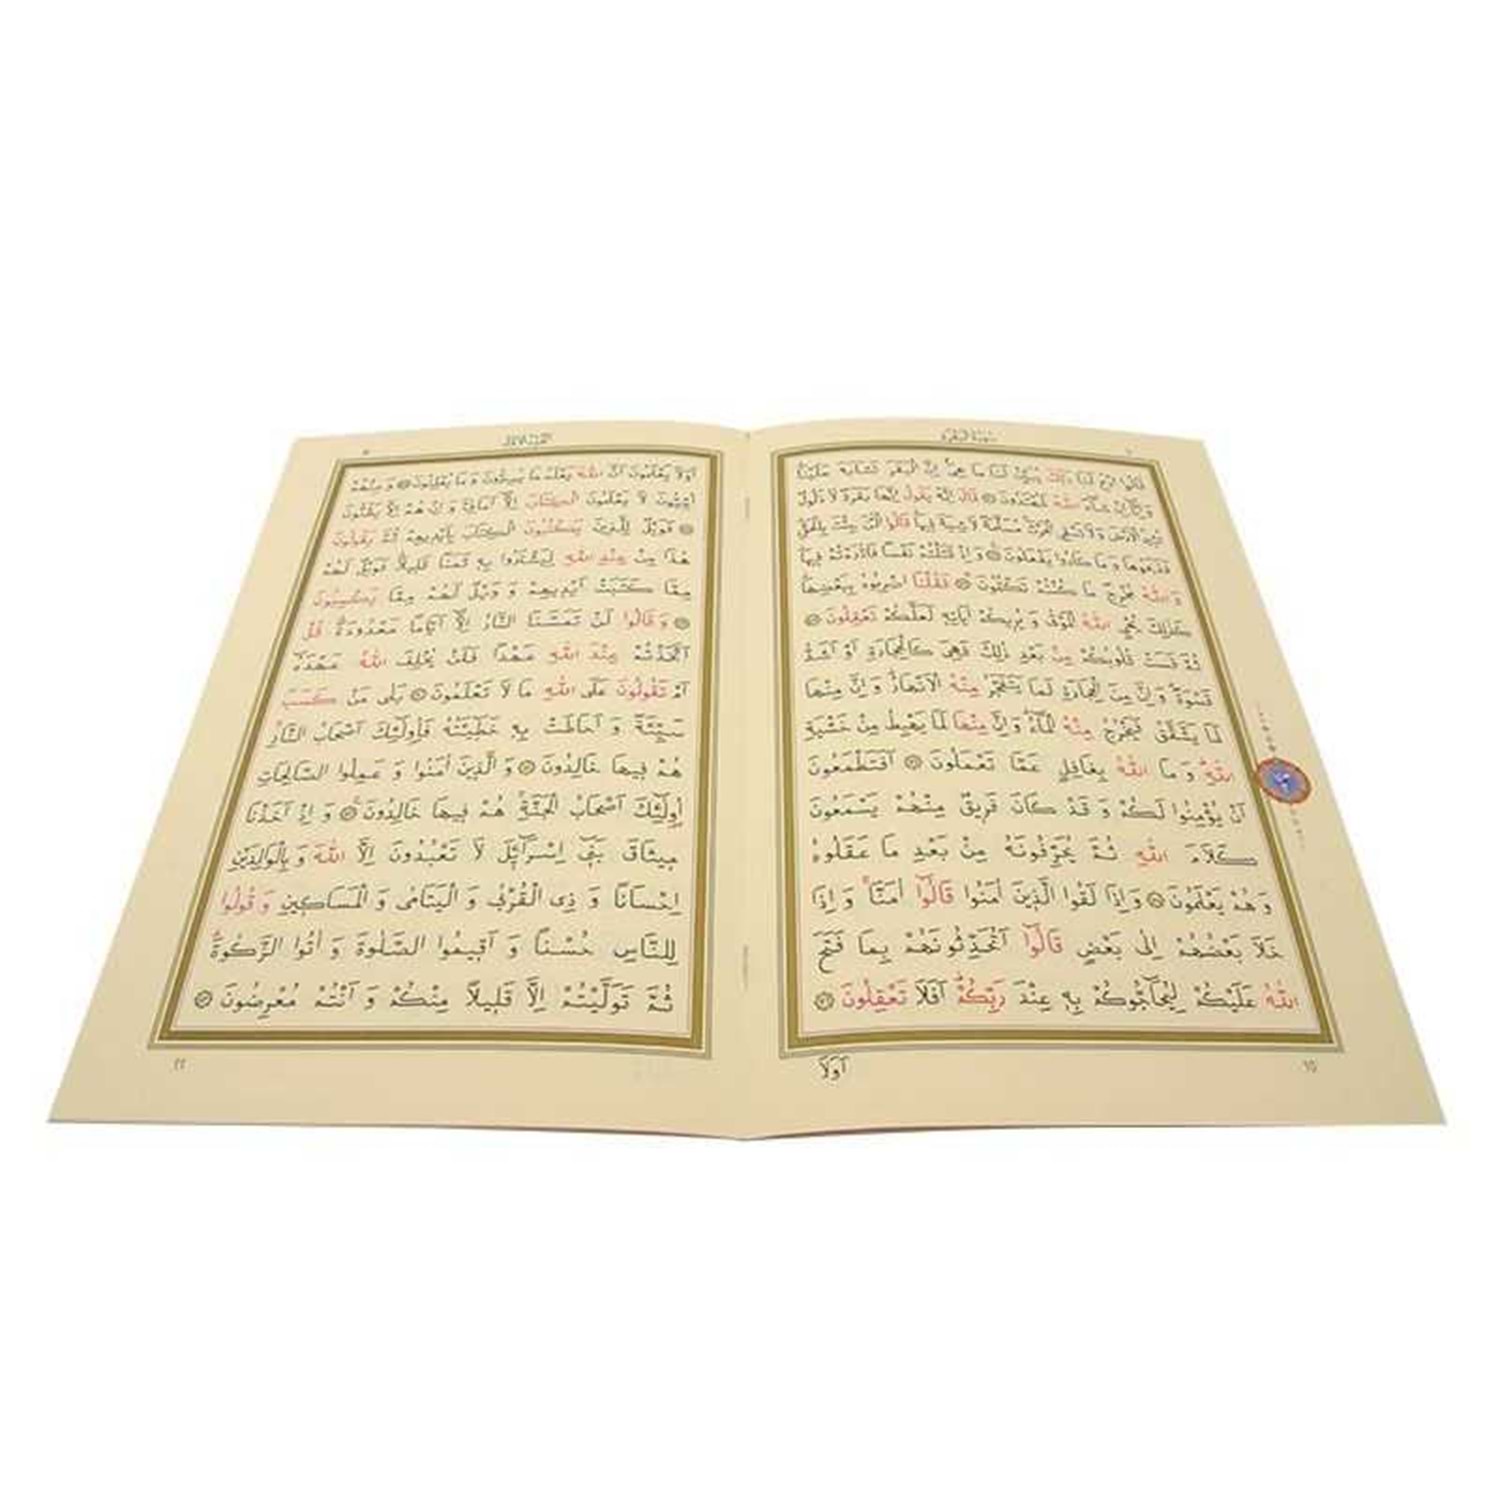 سورة البقرة
قالوا ادع لنا ربك يبين لنا ما هى ان البقر تشابه علينا
وَاِنَّٓا اِنْ شَٓاءَ اللّٰهُ لَمُهْتَدُونَ قَالَ اِنَّهُ يَقُولُ اِنَّهَا بَقَرَةٌ لَا ذَلُولٌ
تُثِيرُ الْاَرْضَ وَلَا تَسْقِى الْحَرْثَ مُسَلَّمَةٌ لَا شِيَةَ فِيهَا قَالُوا الْـٰٔنَ جِئْتَ بِالْحَقِّ
فَذَبَحُوهَا وَمَا كَادُوا يَفْعَلُونَ وَاِذْ قَتَلْتُمْ نَفْسًا فَادّٰرَءْتُمْ فِيهَا
وَاللّٰهُ مُخْرِجٌ مَا كُنْتُمْ تَكْتُمُونَ فَقُلْنَا اضْرِبُوهُ بِبَعْضِهَا
كَذٰلِكَ يُحْىِ اللّٰهُ الْمَوْتٰى وَيُرِيكُمْ اٰيَاتِهِ لَعَلَّكُمْ تَعْقِلُونَ
ثُمَّ قَسَتْ قُلُوبُكُمْ مِنْ بَعْدِ ذٰلِكَ فَهِىَ كَالْحِجَارَةِ اَوْ اَشَدُّ
قَسْوَةً وَاِنَّ مِنَ الْحِجَارَةِ لَمَا يَتَفَجَّرُ مِنْهُ الْاَنْهَارُ وَاِنَّ مِنْهَا
لَمَا يَشَّقَّقُ فَيَخْرُجُ مِنْهُ الْمَٓاءُ وَاِنَّ مِنْهَا لَمَا يَهْبِطُ مِنْ خَشْيَةِ
اللّٰهِ وَمَا اللّٰهُ بِغَافِلٍ عَمَّا تَعْمَلُونَ اَفَتَطْمَعُونَ
اَنْ يُؤْمِنُوا لَكُمْ وَقَدْ كَانَ فَرِيقٌ مِنْهُمْ يَسْمَعُونَ
كَلَامَ اللّٰهِ ثُمَّ يُحَرِّفُونَهُ مِنْ بَعْدِ مَا عَقَلُوهُ
وَهُمْ يَعْلَمُونَ وَاِذَا لَقُوا الَّذِينَ اٰمَنُوا قَالُٓوا اٰمَنَّا وَاِذَا
خَلَا بَعْضُهُمْ اِلٰى بَعْضٍ قَالُٓوا اَتُحَدِّثُونَهُمْ بِمَا فَتَحَ
اللّٰهُ عَلَيْكُمْ لِيُحَٓاجُّوكُمْ بِهِ عِنْدَ رَبِّكُمْ اَفَلَا تَعْقِلُونَ
اَوَلَا
اَوَلَا يَعْلَمُونَ اَنَّ اللّٰهَ يَعْلَمُ مَا يُسِرُّونَ وَمَا يُعْلِنُونَ وَمِنْهُمْ
اُمِّيُّونَ لَا يَعْلَمُونَ الْكِتَابَ اِلَّٓا اَمَانِىَّ وَاِنْ هُمْ اِلَّا يَظُنُّونَ
فَوَيْلٌ لِلَّذِينَ يَكْتُبُونَ الْكِتَابَ بِاَيْدِيهِمْ ثُمَّ يَقُولُونَ
هٰذَا مِنْ عِنْدِ اللّٰهِ لِيَشْتَرُوا بِهِ ثَمَنًا قَلِيلًا فَوَيْلٌ لَهُمْ
مِمَّا كَتَبَتْ اَيْدِيهِمْ وَوَيْلٌ لَهُمْ مِمَّا يَكْسِبُونَ
وَقَالُوا لَنْ تَمَسَّنَا النَّارُ اِلَّٓا اَيَّامًا مَعْدُودَةً قُلْ
اَتَّخَذْتُمْ عِنْدَ اللّٰهِ عَهْدًا فَلَنْ يُخْلِفَ اللّٰهُ عَهْدَهُ
اَمْ تَقُولُونَ عَلَى اللّٰهِ مَا لَا تَعْلَمُونَ بَلٰى مَنْ كَسَبَ
سَيِّئَةً وَاَحَاطَتْ بِهِ خَطِيٓئَتُهُ فَاُولٰٓئِكَ اَصْحَابُ النَّارِ
هُمْ فِيهَا خَالِدُونَ وَالَّذِينَ اٰمَنُوا وَعَمِلُوا الصَّالِحَاتِ
اُولٰٓئِكَ اَصْحَابُ الْجَنَّةِ هُمْ فِيهَا خَالِدُونَ وَاِذْ اَخَذْنَا
مِيثَاقَ بَنِىٓ اِسْرَٓائِيلَ لَا تَعْبُدُونَ اِلَّا اللّٰهَ وَبِالْوَالِدَيْنِ
اِحْسَانًا وَذِى الْقُرْبٰى وَالْيَتَامٰى وَالْمَسَاكِينِ وَقُولُوا
لِلنَّاسِ حُسْنًا وَاَقِيمُوا الصَّلٰوةَ وَاٰتُوا الزَّكٰوةَ
ثُمَّ تَوَلَّيْتُمْ اِلَّا قَلِيلًا مِنْكُمْ وَاَنْتُمْ مُعْرِضُونَ